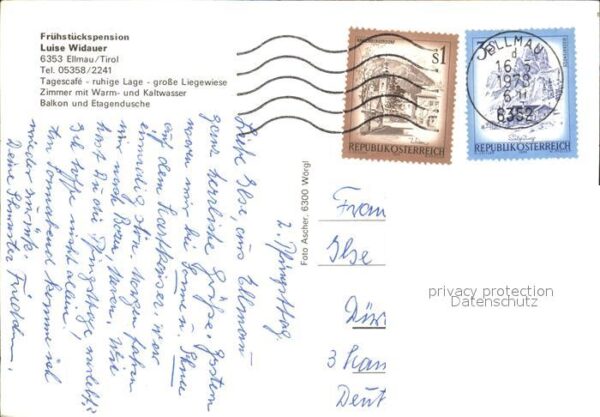 Frühstückspension
Luise Widauer
6353 Ellmau/Tirol
Tel. 05358/2241
Tagescafé - ruhige Lage - große Liegewiese
Zimmer mit Warm- und Kaltwasser
Balkon und Etagendusche
S1
REPUBLIK ÖSTERREICH
ELLMAU
1978
6352
Salzburg
REPUBLIK ÖSTERREICH
2. Pfingsttag.
Liebe Ilse, aus Ellmau
ganz herzliche Grüße. Gestern
waren wir bei Sonne u. Schnee
auf dem Hartkaiser, war
einmalig schön. Morgen fahren
wir nach Bozen, Meran. Wie
hast Du die Pfingsttage verlebt?
Ich hoffe nicht allein!
Am Sonnabend komme ich
wieder zurück.
Deine Schwester Friedchen.
Foto Ascher, 6300 Wörgl
Frau
Ilse
3 Han
Deut
privacy protection
Datenschutz